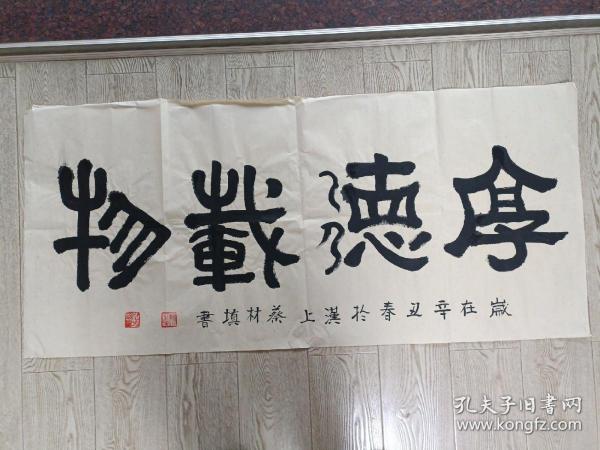 厚德載物
歲在辛丑春於漢上蔡材填書
孔夫子旧书网
www.kongfz.com